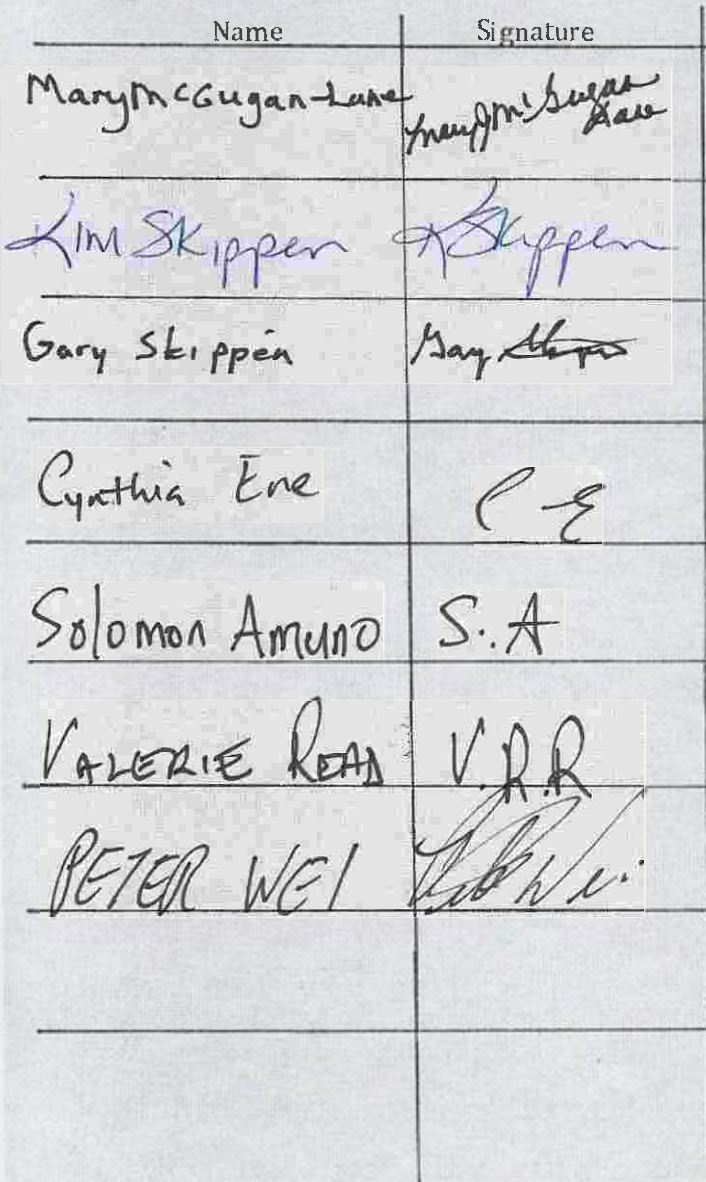 Name Signature
Mary McGugan-Lane Mary J McGugan
Lane
Kim Skippen K Skippen
Gary Skippen Gary
Cynthia Ene C E
Solomon Amuno S.A
VALERIE READ V.R.R
PETER WEI Wei